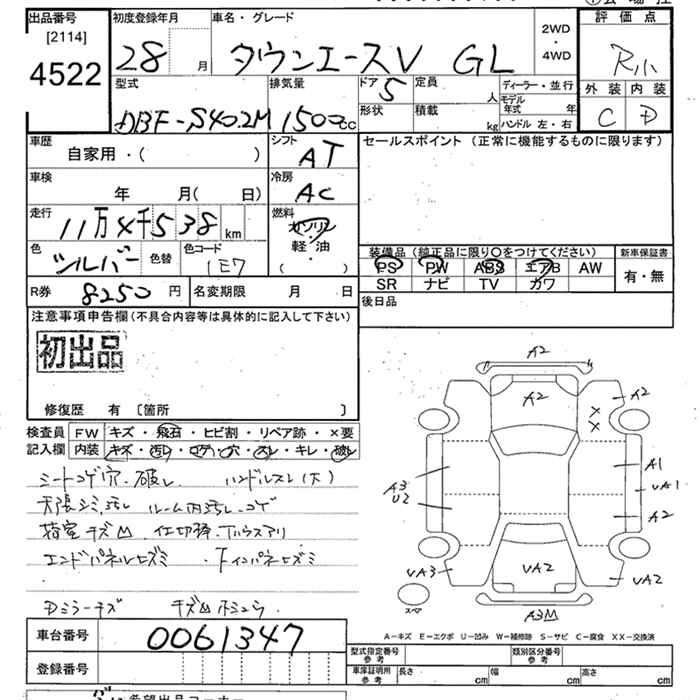 出品番号 初度登録年月 車名・グレード 2WD 評価点
[2114] 4522 28 月 タウンエースV GL ・ 4WD R小
型式 排気量 ドア 5 定員 人 ディーラー・並行 外装 内装
DBF-S402M 1500cc 形状 積載 kg モデル年式 年 C D
ハンドル 左・右
車歴 シフト セールスポイント(正常に機能するものに限ります)
自家用・( ) AT
車検 冷房
年 月( 日) AC
走行 燃料
11万4千538km ガソリン
軽・油
( ・ )
色 シルバー 色替 色コード 1E7
装備品(純正品に限り〇をつけてください) 新車保証書
PS PW ABS エアB AW 有・無
SR ナビ TV カワ
R券 8250円 名変期限 月 日 後日品
注意事項申告欄(不具合内容等は具体的に記入して下さい)
初出品
修復歴 有 〔箇所 〕
検査員 FW キズ・飛石・ヒビ割・リペア跡・×要
記入欄 内装 キズ・汚レ・コゲ・穴・スレ・キレ・破レ
シートコゲ穴、破レ ハンドルスレ(大)
天張シミ、汚レ ルーム内汚レ・コゲ
エンドパネルヒズミ
Dミラーキズ
A2
A2 A2
X
X
A3 A1
U2 UA1
A2
UA3 UA2 UA2
スペア A3M
A-キズ E-エクボ U-凹み W-補修跡 S-サビ C-腐食 XX-交換済
車台番号 0061347
登録番号
型式指定番号 参考 類別区分番号 参考
車庫証明用 参考 長さ cm 幅 cm 高さ cm
希望出品コーナー